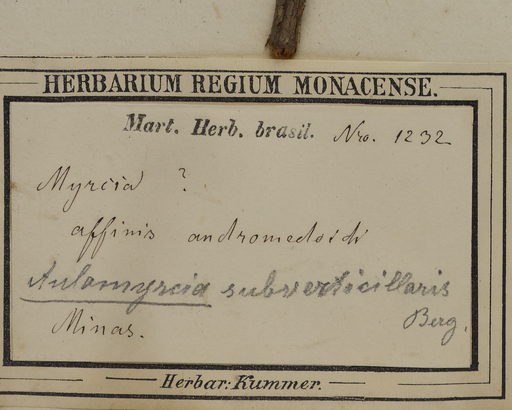 HERBARIUM REGIUM MONACENSE.
Mart. Herb. brasil. Nro. 1232
Myrcia ?
affinis andromedoidi
Aulomyrcia subverticillaris
Berg.
Minas.
Herbar: Kummer.